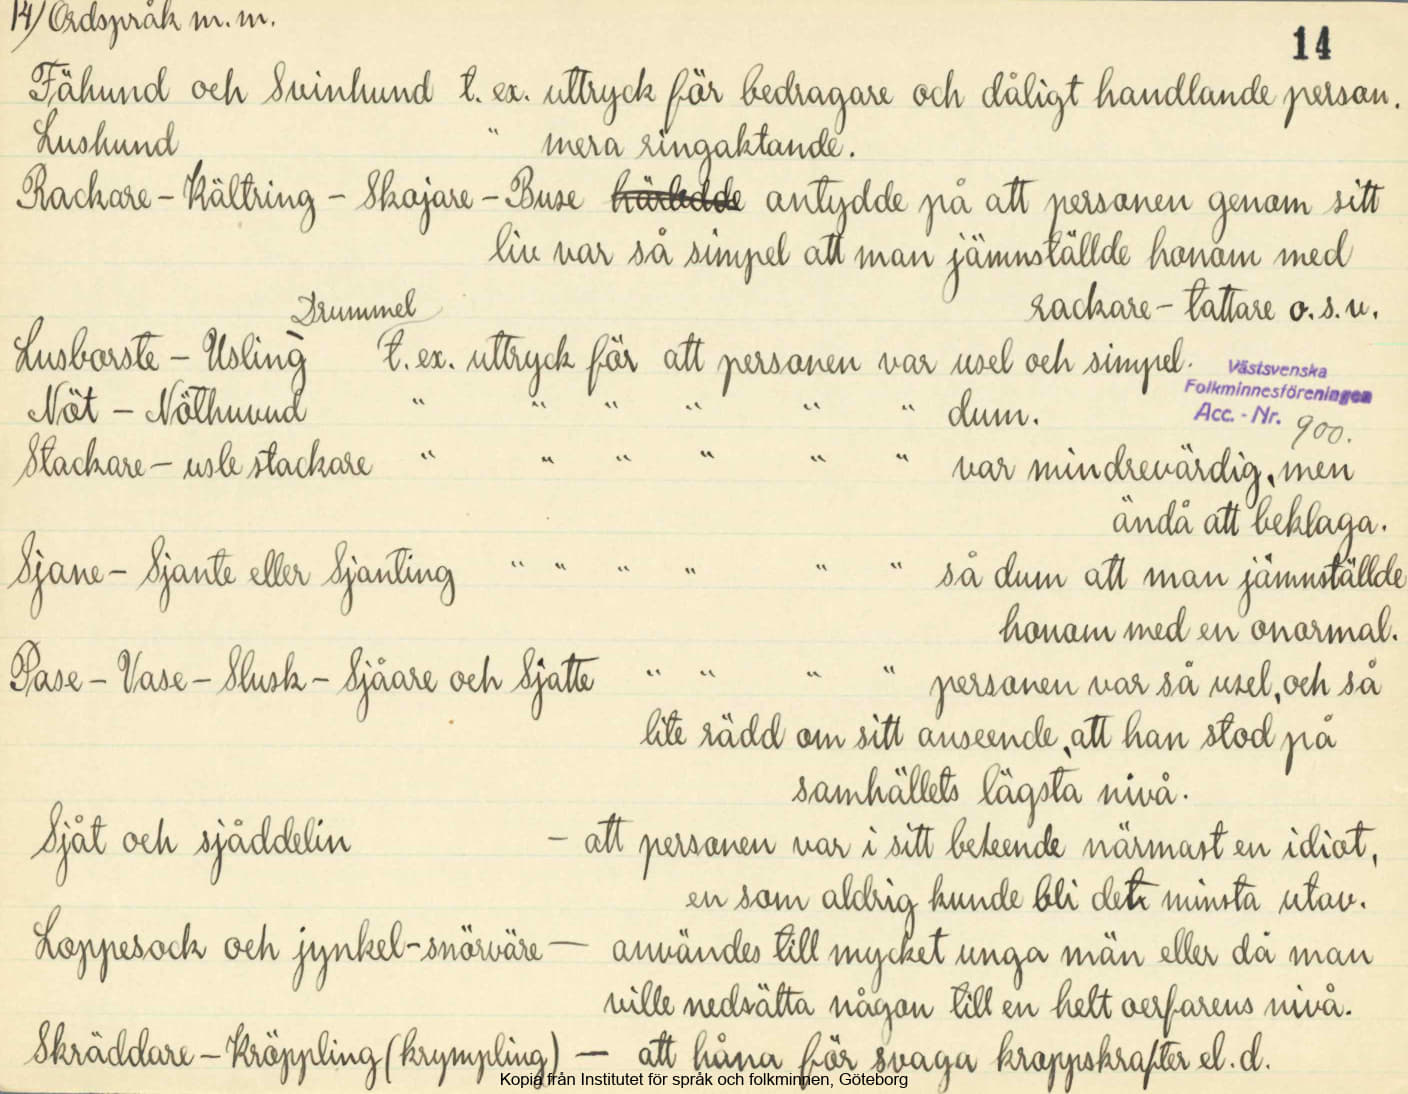 14) Ordspråk m.m.
14
Fähund och Svinhund t. ex. uttryck för bedragare och dåligt handlande person.
Lushund " mera ringaktande.
Rackare - Kältring - Skojare - Buse härledde antydde på att personen genom sitt
liv var så simpel att man jämnställde honom med
rackare - tattare o.s.v.
Drummel
Lusborste - Usling t. ex. uttryck för att personen var usel och simpel.
Västsvenska
Folkminnesföreningen
Acc. - Nr. 900.
Nöt - Nöthuvud " " " " " " dum.
Stackare - usle stackare " " " " " " var mindrevärdig, men
ändå att beklaga.
Sjane - Sjante eller Sjanting " " " " " " så dum att man jämnställde
honom med en onormal.
Pase - Vase - Slusk - Sjåare och Sjatte " " " " personen var så usel, och så
lite rädd om sitt anseende, att han stod på
samhällets lägsta nivå.
Sjåt och sjåddelin - att personen var i sitt beteende närmast en idiot,
en som aldrig kunde bli det minsta utav.
Loppesock och jynkel-snörväre - användes till mycket unga män eller då man
ville nedsätta någon till en helt oerfarens nivå.
Skräddare - Kröppling (krympling) - att håna för svaga kroppskrafter el. d.
Kopia från Institutet för språk och folkminnen, Göteborg